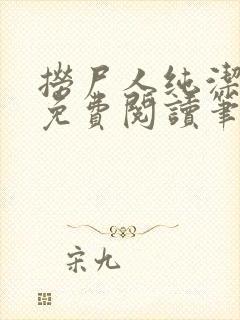 撈尸人純潔
免費閱讀筆
宋九